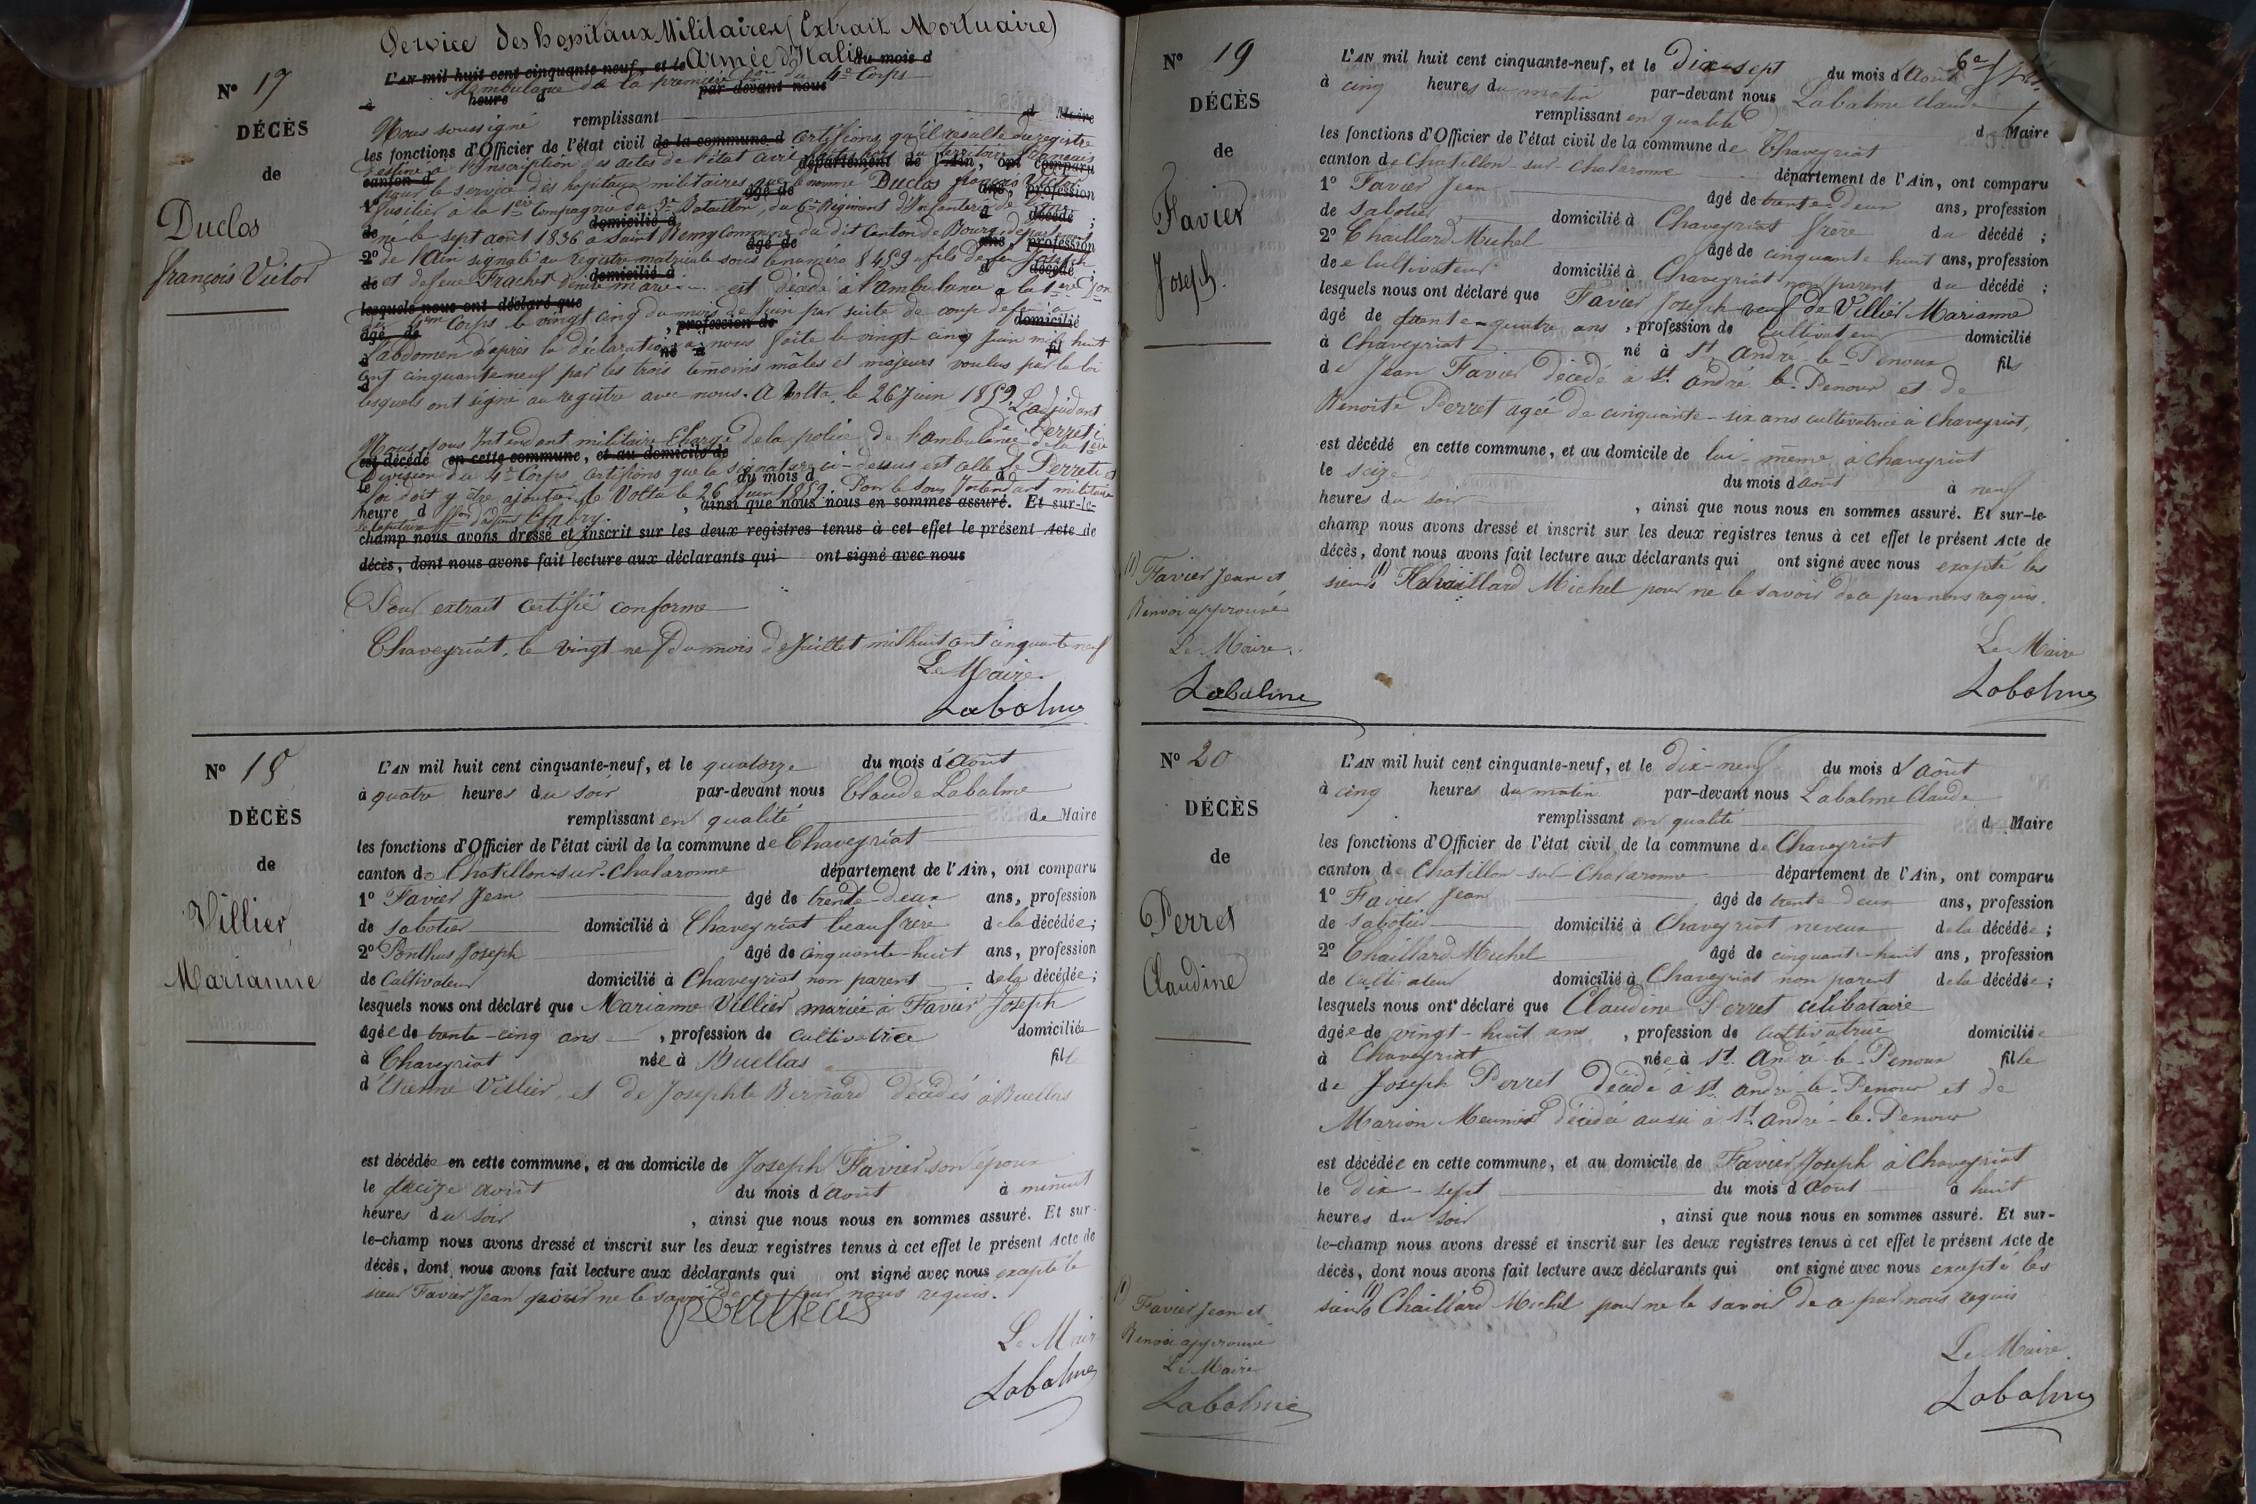 Service des hopitaux Militaires (Extrait Mortuaire)
Armée d'Italie
L'AN mil huit cent cinquante-neuf, et le du mois d
Ambulance de la première Don du 4e Corps
à heure d par-devant nous
N° 17
DÉCÈS
de
Duclos
françois Victor
Nous soussigné remplissant d Maire
les fonctions d'Officier de l'état civil de la commune d certifions qu'il résulte du registre
destiné à l'Inscription des actes de l'état civil du territoire français
canton d département de l'Ain, ont comparu
pour le service des hopitaux militaires que le nommé Duclos françois Victor
1° âgé de ans, profession
fusilier à la 1ere Compagnie du 3e Bataillon, du 6e Régiment d'Infanterie de
de domicilié à d décédé ;
né le sept août 1836 à Saint Remy Commune du dit Canton de Bourg, département
2° âgé de ans, profession
de l'Ain signalé au registre matricule sous le numéro 8459 fils de feu Joseph
de domicilié à d décédé ;
et de feue Frachet Denise Marie est décédé à l'ambulance de la 1ere Don
lesquels nous ont déclaré que
du 4eme Corps le vingt cinq du mois de Juin par suite de coup de feu à
âgé de , profession de domicilié
l'abdomen d'après la déclaration à nous faite le vingt-cinq Juin mil huit
à né à fil
cent cinquante neuf par les trois témoins mâles et majeurs voulus par la loi
d
lesquels ont signé au registre avec nous. A Volta, le 26 Juin 1859. L'adjudant
Perreti
Nous, sous Intendant militaire Chargé de la police de l'ambulance de la 1ere
est décédé en cette commune, et au domicile de
Division du 4e Corps certifions que la signature ci-dessus est celle de Perreti et
le du mois d à
foi doit y être ajoutée, le Volta le 26 Juin 1859. Pour le sous Intendant militaire
heure d , ainsi que nous nous en sommes assuré. Et sur-le-
champ nous avons dressé et inscrit sur les deux registres tenus à cet effet le présent Acte de
décès, dont nous avons fait lecture aux déclarants qui ont signé avec nous
Pour extrait certifié conforme
Chaveyriat, le vingt neuf du mois de Juillet mil huit cent cinquante neuf
Le Maire
Labalme
N° 18
DÉCÈS
de
Villier
Marianne
L'AN mil huit cent cinquante-neuf, et le quatorze du mois d'août
à quatre heures du soir par-devant nous Claude Labalme
remplissant en qualité de Maire
les fonctions d'Officier de l'état civil de la commune de Chaveyriat
canton de Chatillon-sur-Chalaronne département de l'Ain, ont comparu
1° Favier Jean âgé de trente-deux ans, profession
de sabotier domicilié à Chaveyriat beaufrère de la décédée ;
2° Ponthus Joseph âgé de cinquante-huit ans, profession
de Cultivateur domicilié à Chaveyriat non parent de la décédée ;
lesquels nous ont déclaré que Marianne Villier mariée à Favier Joseph
âgée de trente-cinq ans , profession de cultivatrice domiciliée
à Chaveyriat née à Buellas fill
d'Etienne Villier, et de Josephte Bernard décédés à Buellas
est décédée en cette commune, et au domicile de Joseph Favier son époux
le août du mois d'août à minuit
heures du soir , ainsi que nous nous en sommes assuré. Et sur-
le-champ nous avons dressé et inscrit sur les deux registres tenus à cet effet le présent Acte de
décès, dont nous avons fait lecture aux déclarants qui ont signé avec nous excepté le
sieur Favier Jean pour ne le savoir de ce par nous requis.
Ponthus
Le Maire
Labalme
6e
N° 19
DÉCÈS
de
Favier
Joseph.
L'AN mil huit cent cinquante-neuf, et le dix-sept du mois d'août
à cinq heures du matin par-devant nous Labalme Claude
remplissant en qualité de Maire
les fonctions d'Officier de l'état civil de la commune de Chaveyriat
canton de Chatillon-sur-Chalaronne département de l'Ain, ont comparu
1° Favier Jean âgé de trente-deux ans, profession
de sabotier domicilié à Chaveyriat frère du décédé ;
2° Chaillard Michel âgé de cinquante huit ans, profession
de cultivateur domicilié à Chaveyriat non parent du décédé ;
lesquels nous ont déclaré que Favier Joseph veuf de Villier Marianne
âgé de trente-quatre ans , profession de Cultivateur domicilié
à Chaveyriat né à St André-le-Penoux fils
de Jean Favier décédé à St. andré-le-Penoux et de
Benoite Perret agée de cinquante-six ans cultivatrice à Chaveyriat,
est décédé en cette commune, et au domicile de lui-même à Chaveyriat
le seize du mois d'août à neuf
heures du soir , ainsi que nous nous en sommes assuré. Et sur-le-
champ nous avons dressé et inscrit sur les deux registres tenus à cet effet le présent Acte de
décès, dont nous avons fait lecture aux déclarants qui ont signé avec nous excepté les
sieurs (1) Chaillard Michel pour ne le savoir de ce par nous requis.
(1) Favier Jean et
Renvoi approuvé
Le Maire.
Labalme
Le Maire
Labalme
N° 20
DÉCÈS
de
Perret
Claudine
L'AN mil huit cent cinquante-neuf, et le dix-neuf du mois d'août
à cinq heures du matin par-devant nous Labalme Claude
remplissant en qualité d Maire
les fonctions d'Officier de l'état civil de la commune de Chaveyriat
canton de Chatillon-sur-Chalaronne département de l'Ain, ont comparu
1° Favier Jean âgé de trente deux ans, profession
de sabotier domicilié à Chaveyriat neveux de la décédée ;
2° Chaillard Michel âgé de cinquante-huit ans, profession
de Cultivateur domicilié à Chaveyriat non parent de la décédée ;
lesquels nous ont déclaré que Claudine Perret célibataire
âgée de vingt-huit ans , profession de cultivatrice domiciliée
à Chaveyriat née à St. André-le-Penoux fille
de Joseph Perret décédé à St. andré-le-Penoux et de
Marion Meunier décédée aussi à St. andré-le-Penoux
est décédée en cette commune, et au domicile de Favier Joseph à Chaveyriat
le dix-sept du mois d'août à huit
heures du soir , ainsi que nous nous en sommes assuré. Et sur-
le-champ nous avons dressé et inscrit sur les deux registres tenus à cet effet le présent Acte de
décès, dont nous avons fait lecture aux déclarants qui ont signé avec nous excepté les
sieurs (1) Chaillard Michel pour ne le savoir de ce par nous requis
(1) Favier Jean et
Renvoi approuvé
Le Maire
Labalme
Le Maire
Labalme